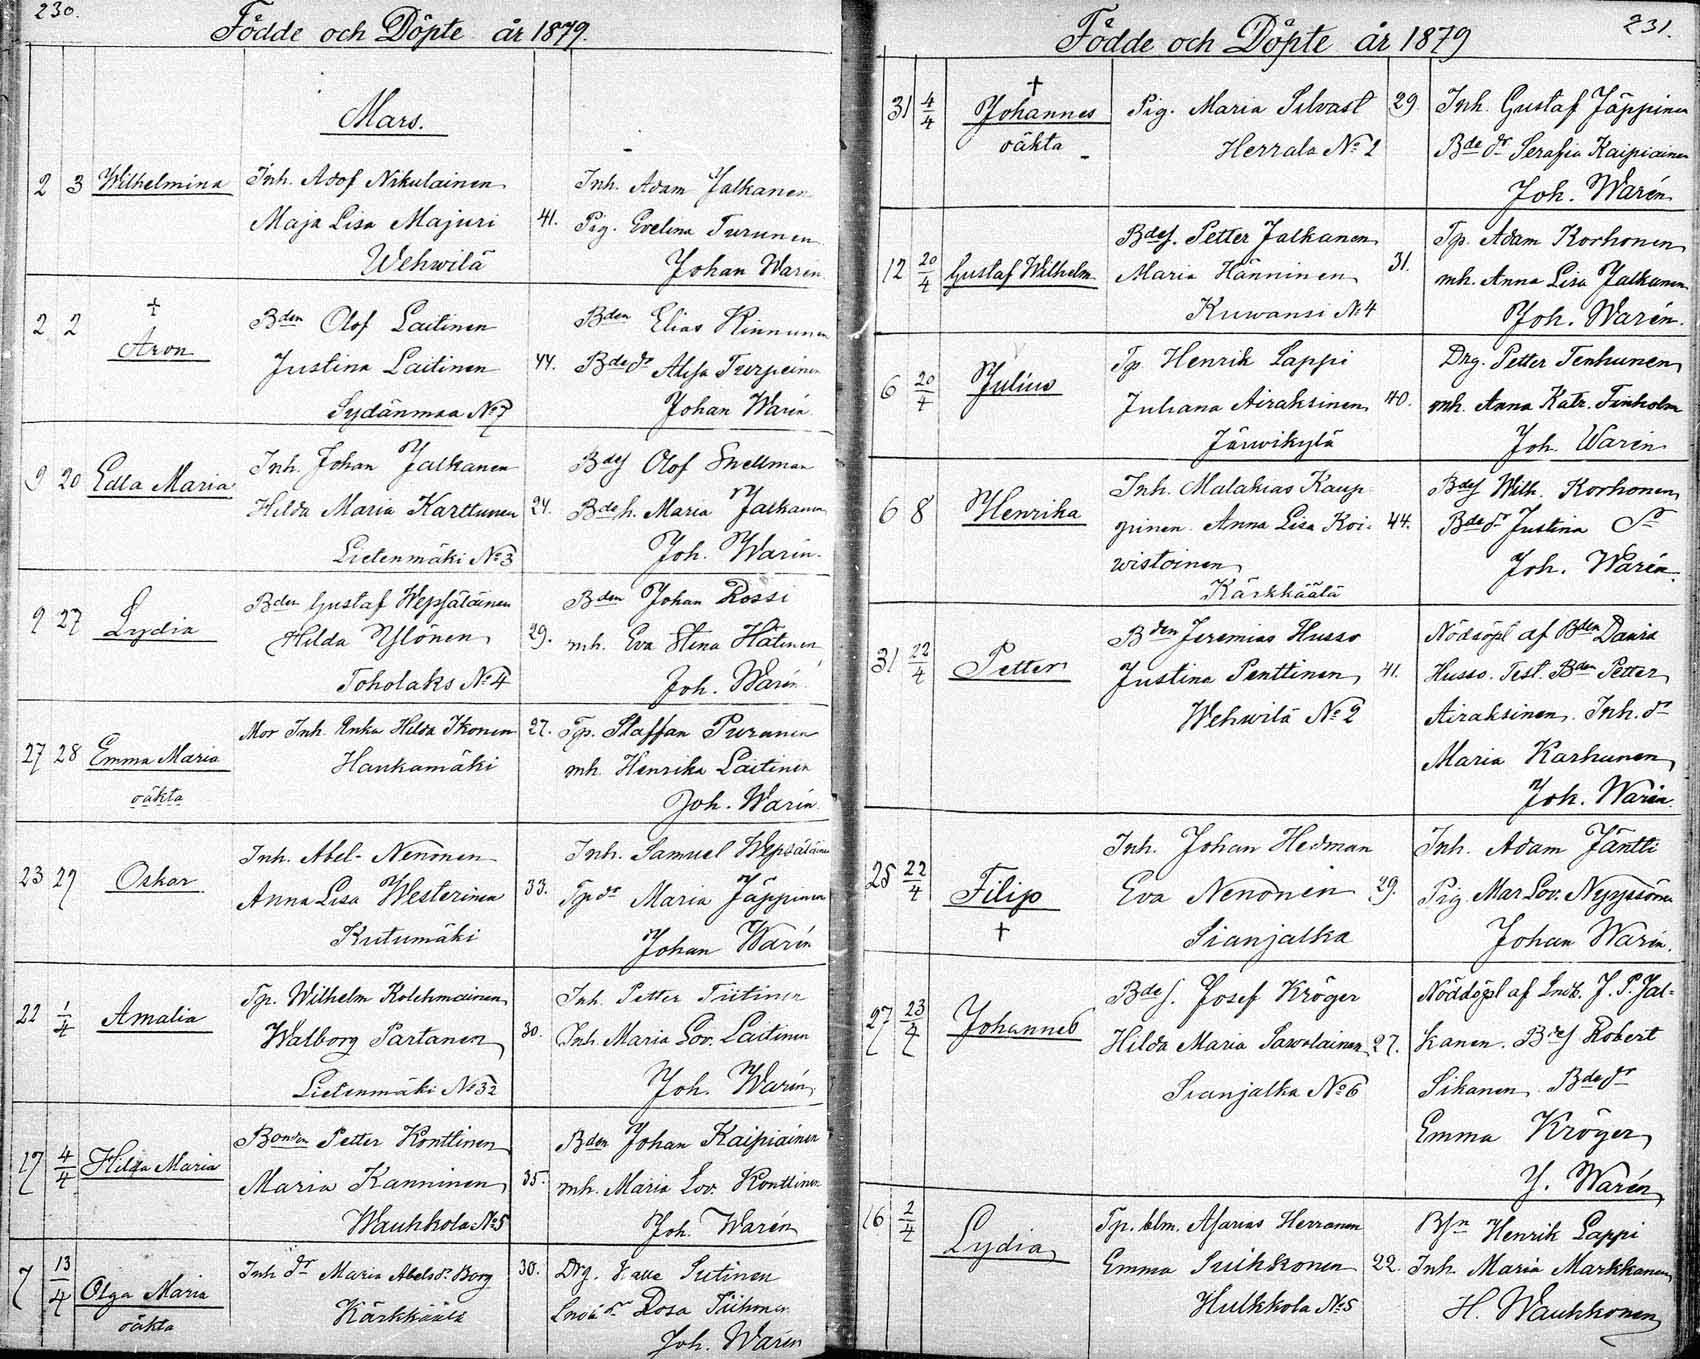 230.
Födde och Döpte år 1879.
Mars.
2 3 Wilhelmina Inh. Adof Nikulainen Inh. Adam Jalkanen
Maja Lisa Majuri 41. Pig. Evelina Turunen
Wehwilä Johan Warén
2 2 † Aron Bden Olof Laitinen Bden Elias Kinnunen
Justina Laitinen 44. Bdedr Turpeinen
Sydänmaa No 7 Johan Warén
9 20 Edla Maria Inh. Johan Jalkanen Bdes Olof Snellman
Hilda Maria Karttunen 24. Bdeh. Maria Jalkanen
Lietenmäki No 3 Joh. Warén.
9 27 Lydia Bden Gustaf Wepsäläinen Bden Johan Rossi
Hilda Ylönen 29. mh. Eva Stina Hätinen
Toholaks No 4 Joh. Warén
27 28 Emma Maria Mor Inh. Enka Hilda Ikonen 27. Tp. Staffan Puranen
oäkta Hankamäki mh Henrika Laitinen
Joh. Warén.
23 29 Oskar Inh. Abel Nenonen Inh. Samuel Wepsäläinen
Anna Lisa Westerinen 33. Tp dr Maria Jäppinen
Kutumäki Johan Warén
22 1/4 Amalia Tp. Wilhelm Kolehmainen Inh. Petter Tiitinen
Walborg Partanen 30. Inh. Maria Lov. Laitinen
Lietenmäki No 32 Joh. Warén
17 4/4 Hilda Maria Bonden Petter Konttinen Bden Johan Kaipiainen
Maria Kanninen 35. mh. Maria Lov. Konttinen
Wauhkola No 5 Joh. Warén
7 13/4 Olga Maria Inh dr Maria Abelsdr Borg 30. Drg. Kalle Sutinen
oäkta Kärkkäälä Rosa Tiihonen
Joh. Warén
231.
Födde och Döpte år 1879
31 4/4 † Johannes Pig. Maria Silvast 29 Inh. Gustaf Jäppinen
oäkta Herrala No 2 Bde dr Serafia Kaipiainen
Joh. Warén
12 20/4 Gustaf Wilhelm Bdes. Petter Jalkanen Tp. Adam Korhonen
Maria Hänninen 31. mh. Anna Lisa Jalkanen
Kuwansi No 4 Joh. Warén.
6 20/4 Julius Tp Henrik Lappi Drg. Petter Tenhunen
Juliana Airaksinen 40. mh. Anna Katr. Finholm
Järwikylä Joh. Warén
6 8 Henrika Inh. Malakias Kaup- Bdes Wilh. Korhonen
pinen Anna Lisa Koi- 44. Bde dr Justina Dr
wistoinen Joh. Warén.
Kärkkäälä
31 22/4 Petter Bden Jeremias Husso Nöddöpt af Bden David
Justina Penttinen 41. Husso. Test. Bden Petter
Wehwilä No 2 Airaksinen. Inh. dr
Maria Karhunen
Joh. Warén
25 22/4 Filip † Inh. Johan Hedman Inh. Adam Jäntti
Eva Nenonen 29. Pig. Mar Lov. Nyyssönen
Sianjalka Johan Warén.
27 23/4 Johannes Bdes. Josef Kröger Nöddöpt af Indt. J. P. Jal-
Hilda Maria Sawolainen 27. kanen. Bdes Robert
Sianjalka No 6 Sikanen Bde dr
Emma Kröger
J. Warén
16 2/4 Lydia Tp. blm. Asarias Herranen Henrik Lappi
Emma Suihkonen 22. Inh. Maria Markkanen
Hulkkola No 5 H. Wauhkonen